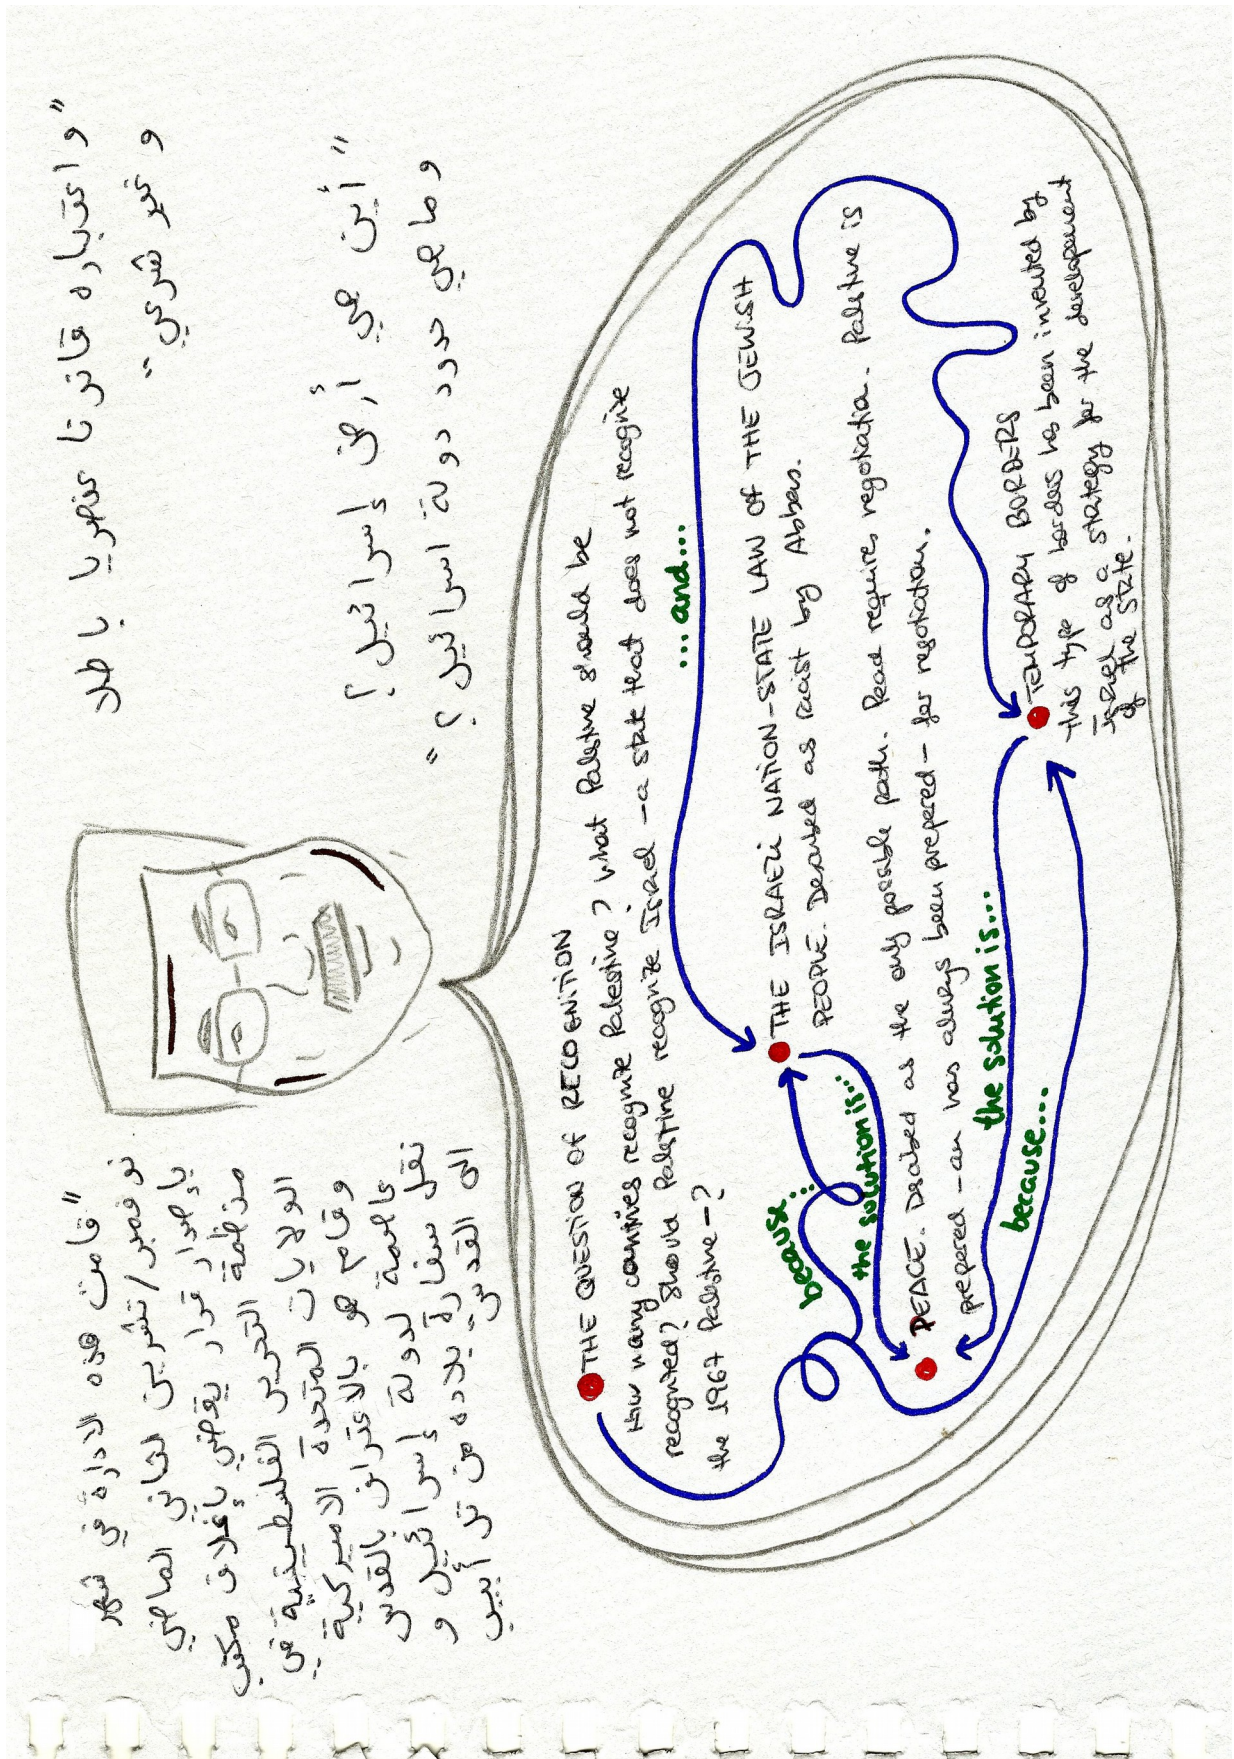 "قامت هذه الادارة في شهر
نوفمبر/تشرين الثاني الماضي
بإصدار قرار يقضي بإغلاق مكتب
منظمة التحرير الفلسطينية في
الولايات المتحدة الاميركية
وقام هو بالاعتراف بالقدس
عاصمة لدولة إسرائيل و
نقل سفارة بلاده من تل أبيب
الى القدس
"واعتباره قانونا عنصريا باطلا
وغير شرعي"
"أين هي أرض إسرائيل؟
وما هي حدود دولة اسرائيل؟"
THE QUESTION OF RECOGNITION
How many countries recognize Palestine? What Palestine should be
recognized? Should Palestine recognize Israel - a state that does not recognize
the 1967 Palestine -?
...and...
THE ISRAELI NATION-STATE LAW OF THE JEWISH
PEOPLE. Described as racist by Abbas.
because...
the solution is...
PEACE. Described as the only possible path. Peace requires negotiation. Palestine is
prepared - an has always been prepared - for negotiation.
the solution is...
because...
TEMPORARY BORDERS
this type of borders has been invented by
Israel as a strategy for the development
of the State.